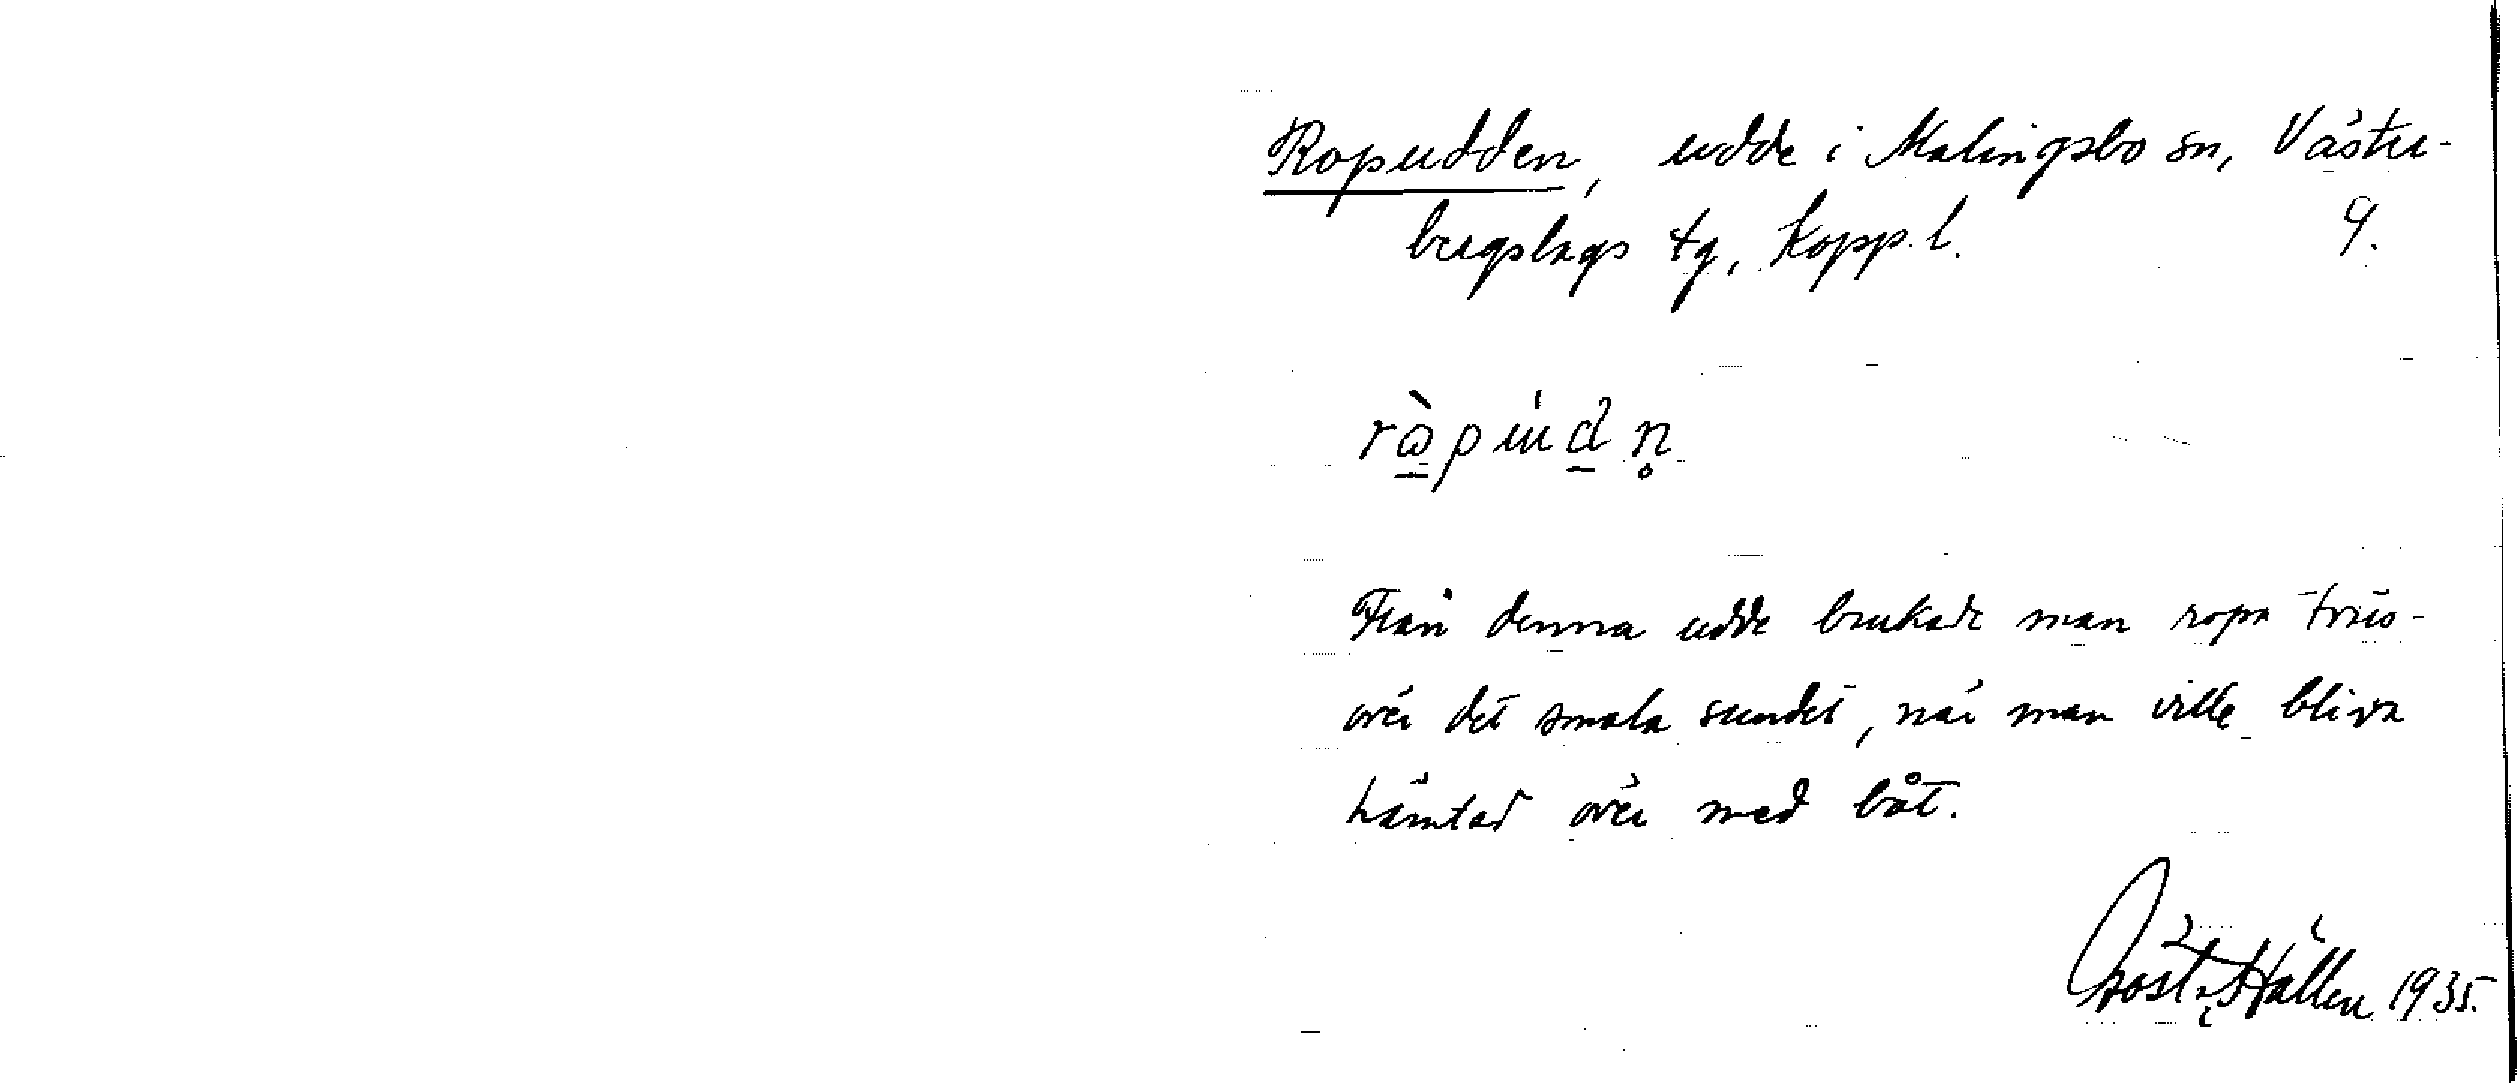 Ropudden, udde i Malingsbo sn, Väster-
bergslags tg, Kopp. l. 9.
Från denna udde brukade man ropa tvärs-
över det smala sundet, när man ville bliva
hämtad över med båt.
Gösta Hallén 1935.